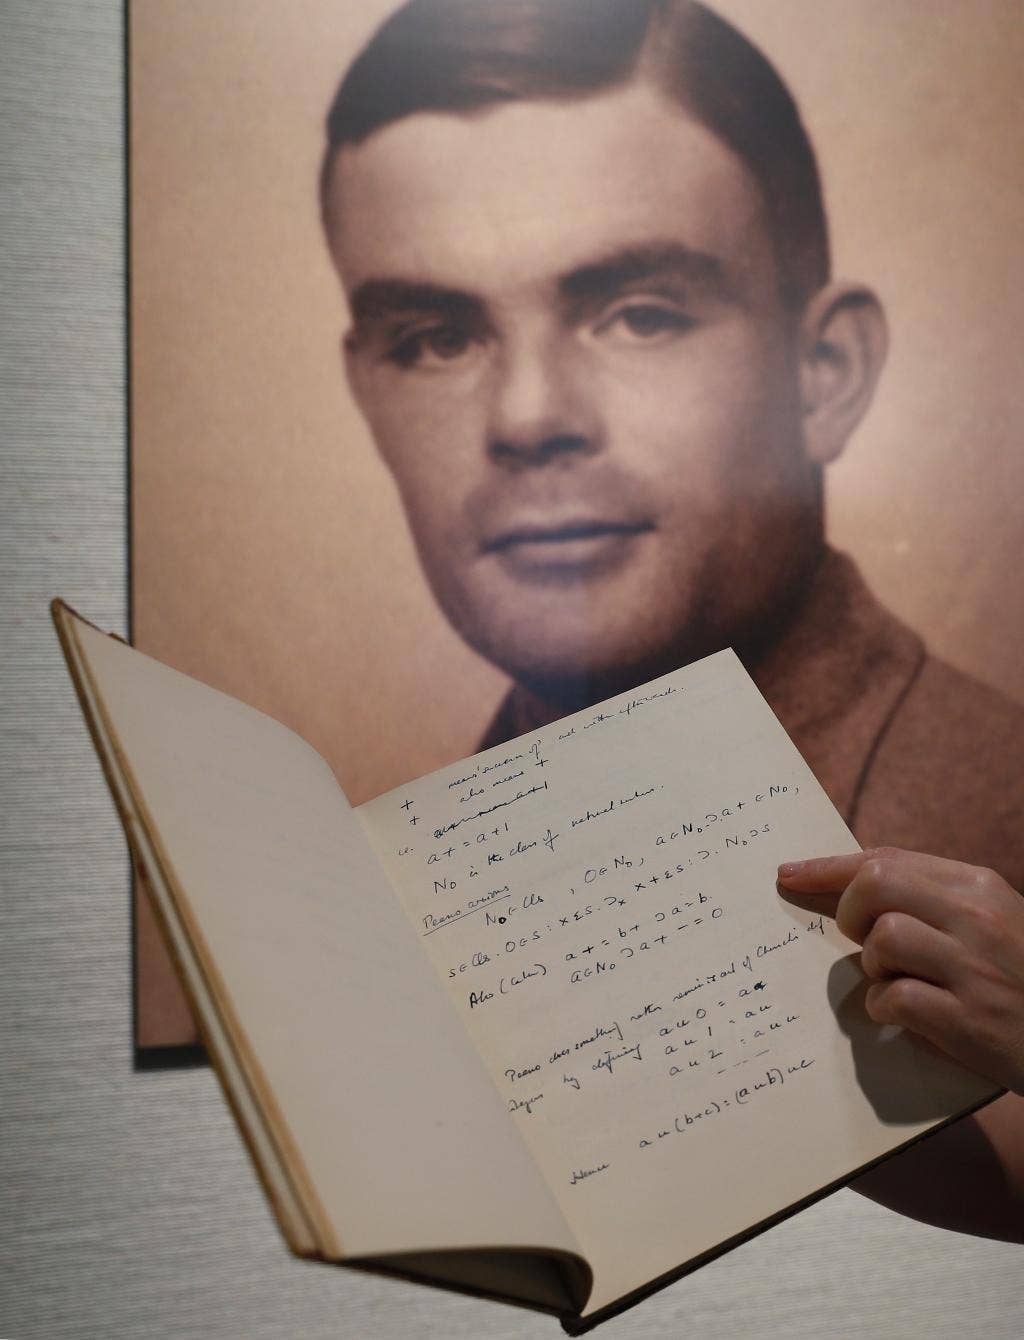 + means 'successor of' and with afterwards.
+ also means +
i.e. a+ = a+1
N₀ is the class of natural numbers.
Peano axioms
N₀ ∈ Cls , 0 ∈ N₀ , a ∈ N₀ .⊃. a+ ∈ N₀ ,
s ∈ Cls . 0 ∈ s : x ε s . ⊃ₓ x + ε s : ⊃. N₀ ⊃ s
Also (later) a+ = b+ ⊃ a = b.
a ∈ N₀ ⊃ a+ – = 0
Peano does something rather reminiscent of Church's def
by defining a u 0 = a
a u 1 = a u
a u 2 = a u u
- - -
Hence a u (b+c) = (a u b) u c